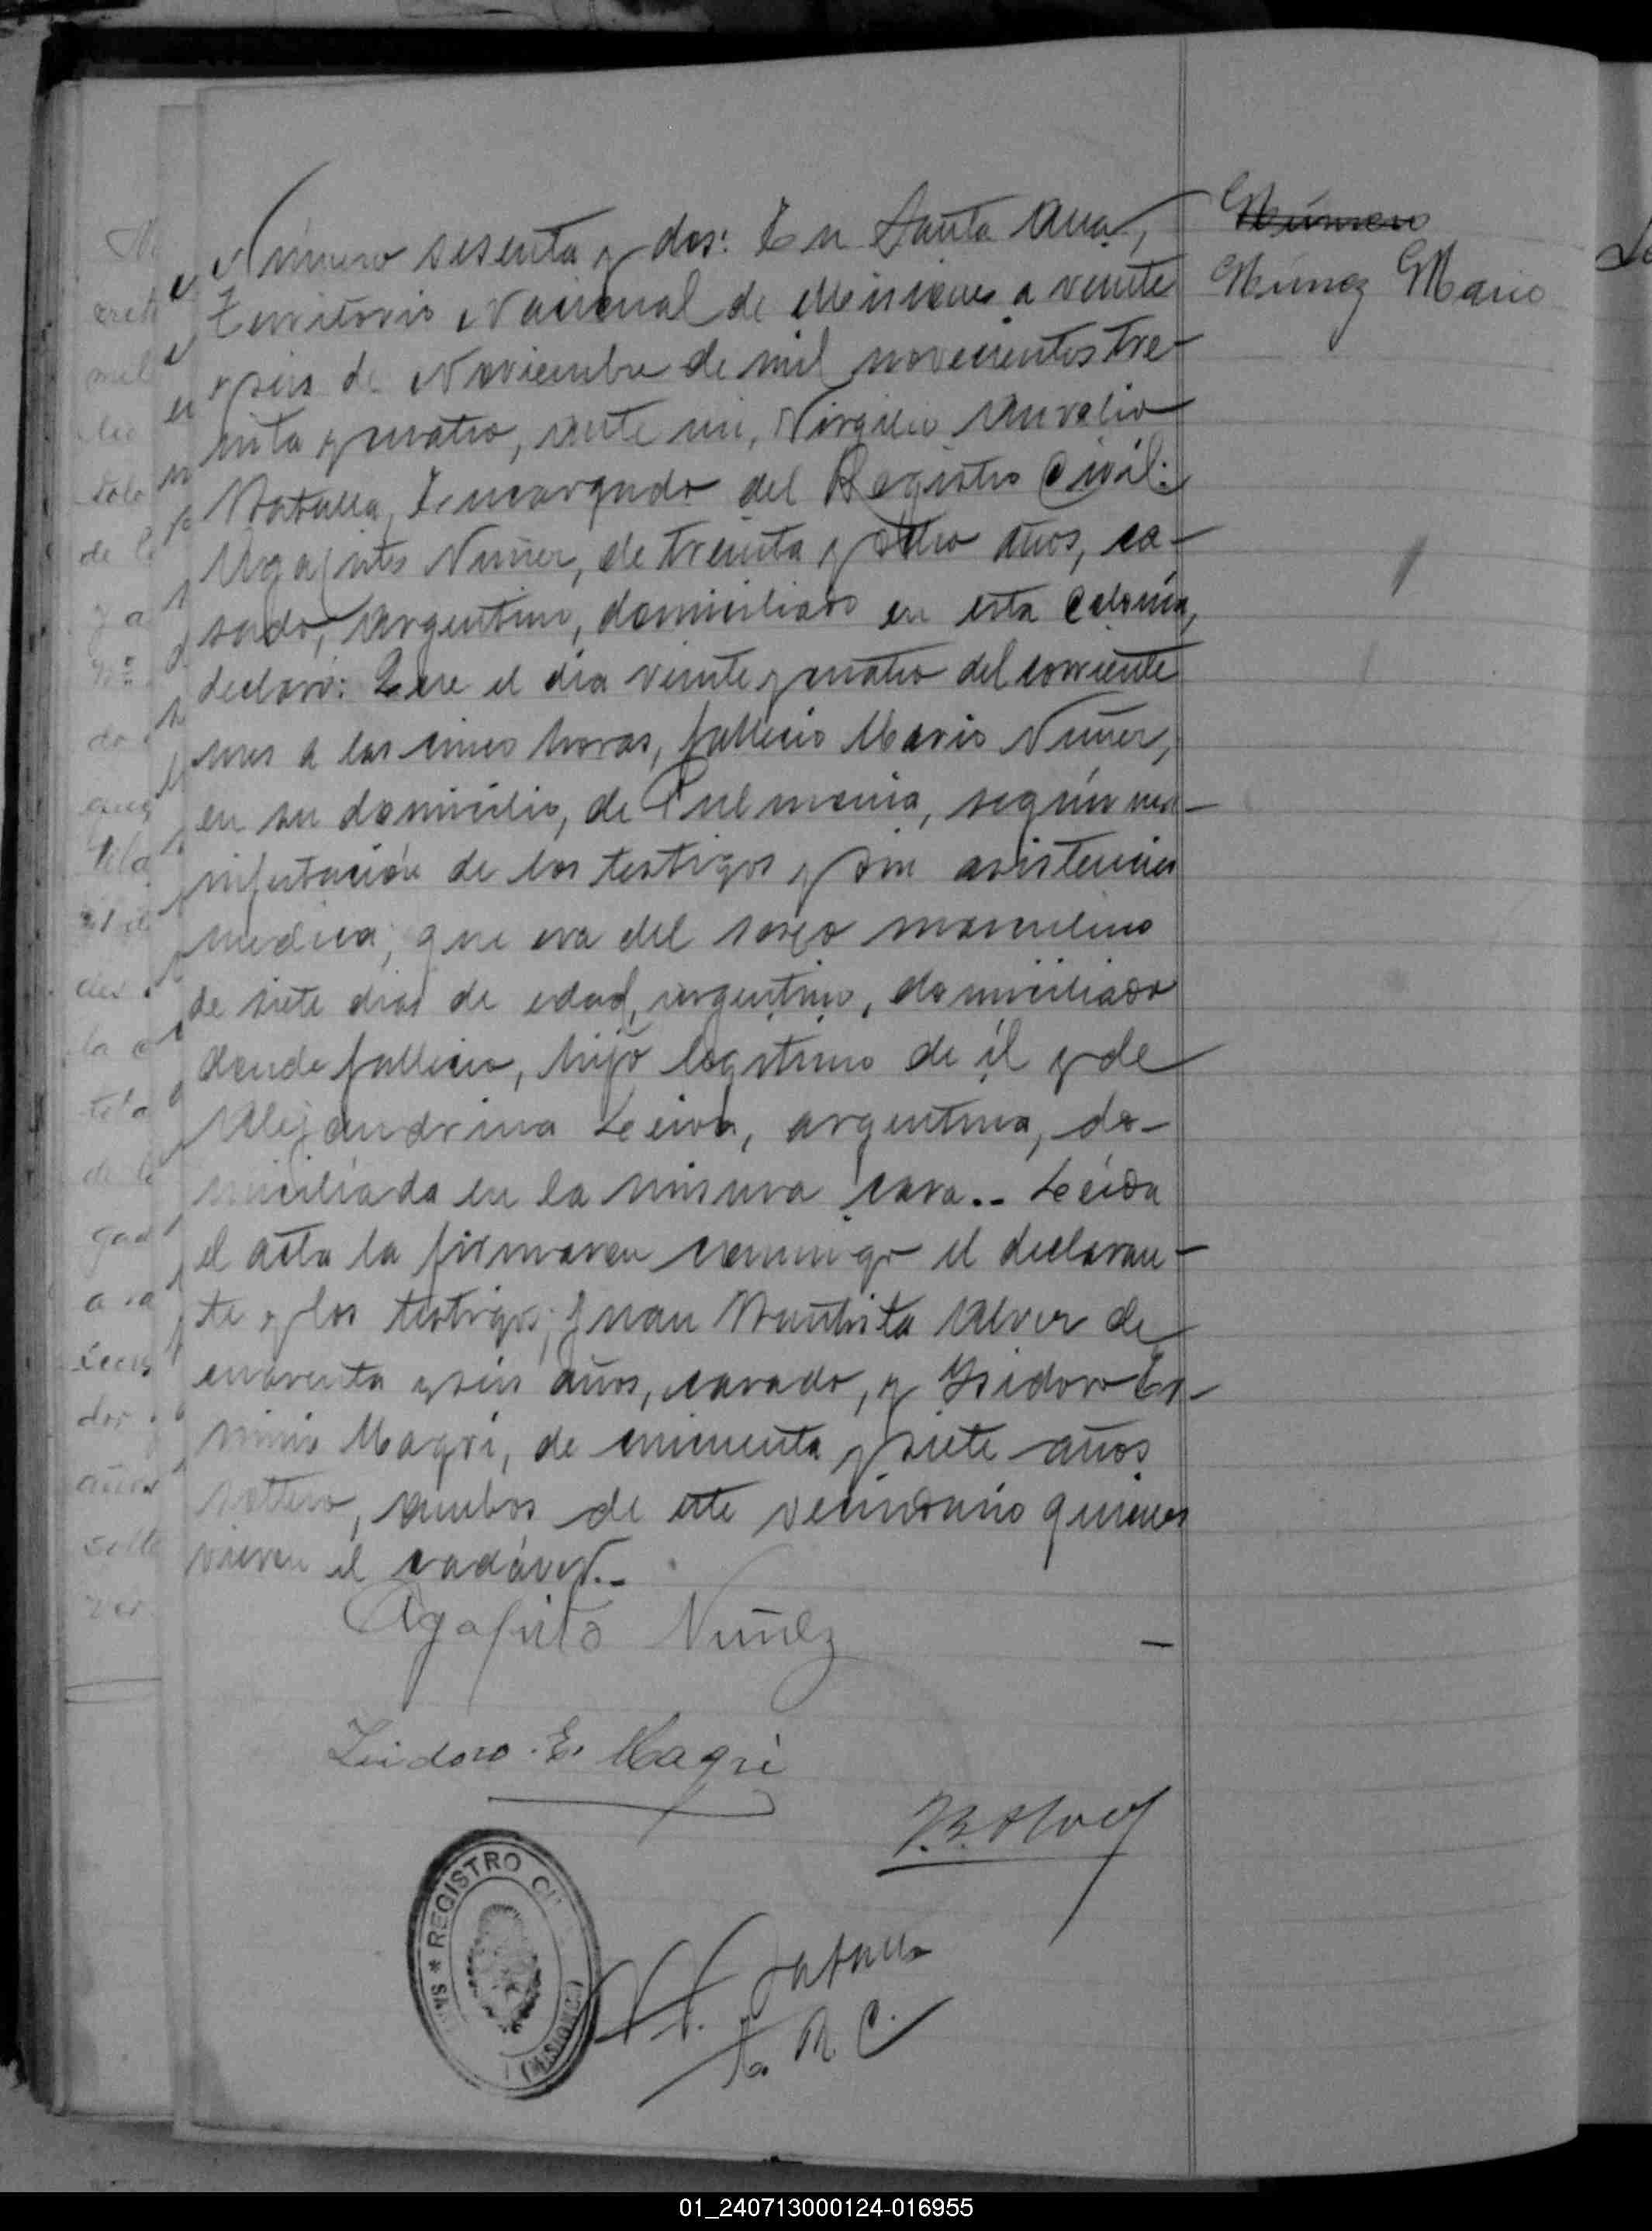 Número sesenta y dos: En Santa Ana,
Territorio Nacional de Misiones a veinte
y seis de Noviembre de mil novecientos tre-
inta y cuatro, ante mi, Virgilio Aurelio
Batalla, Encargado del Registro Civil:
Agapito Nuñez, de treinta y ocho años, ca-
sado, Argentino, domiciliado en esta Colonia,
declaró: Que el día veinte y cuatro del corriente
mes a las cinco horas, falleció Mario Nuñez,
en su domicilio, de Pulmonia, según ma-
nifestación de los testigos y sin asistencia
medica, que era del sexo masculino
de siete dias de edad, argentino, domiciliado
donde falleció, hijo legitimo de él y de
Alejandrina Leiva, argentina, do-
miciliada en la misma casa.- Leída
el acta la firmaron conmigo el declaran-
te y los testigos; Juan Bautista Alver de
cuarenta y seis años, casado, y Isidoro Er-
minio Magri, de cincuenta y siete años
soltero, ambos de este vecindario quienes
vieron el cadáver.-
Agapito Nuñez
Isidoro E. Magri
J.B. Alver
V. A. Batalla
E. R. C.
REGISTRO CI
(MISIONES)
Número
Núnez Mario
01_240713000124-016955